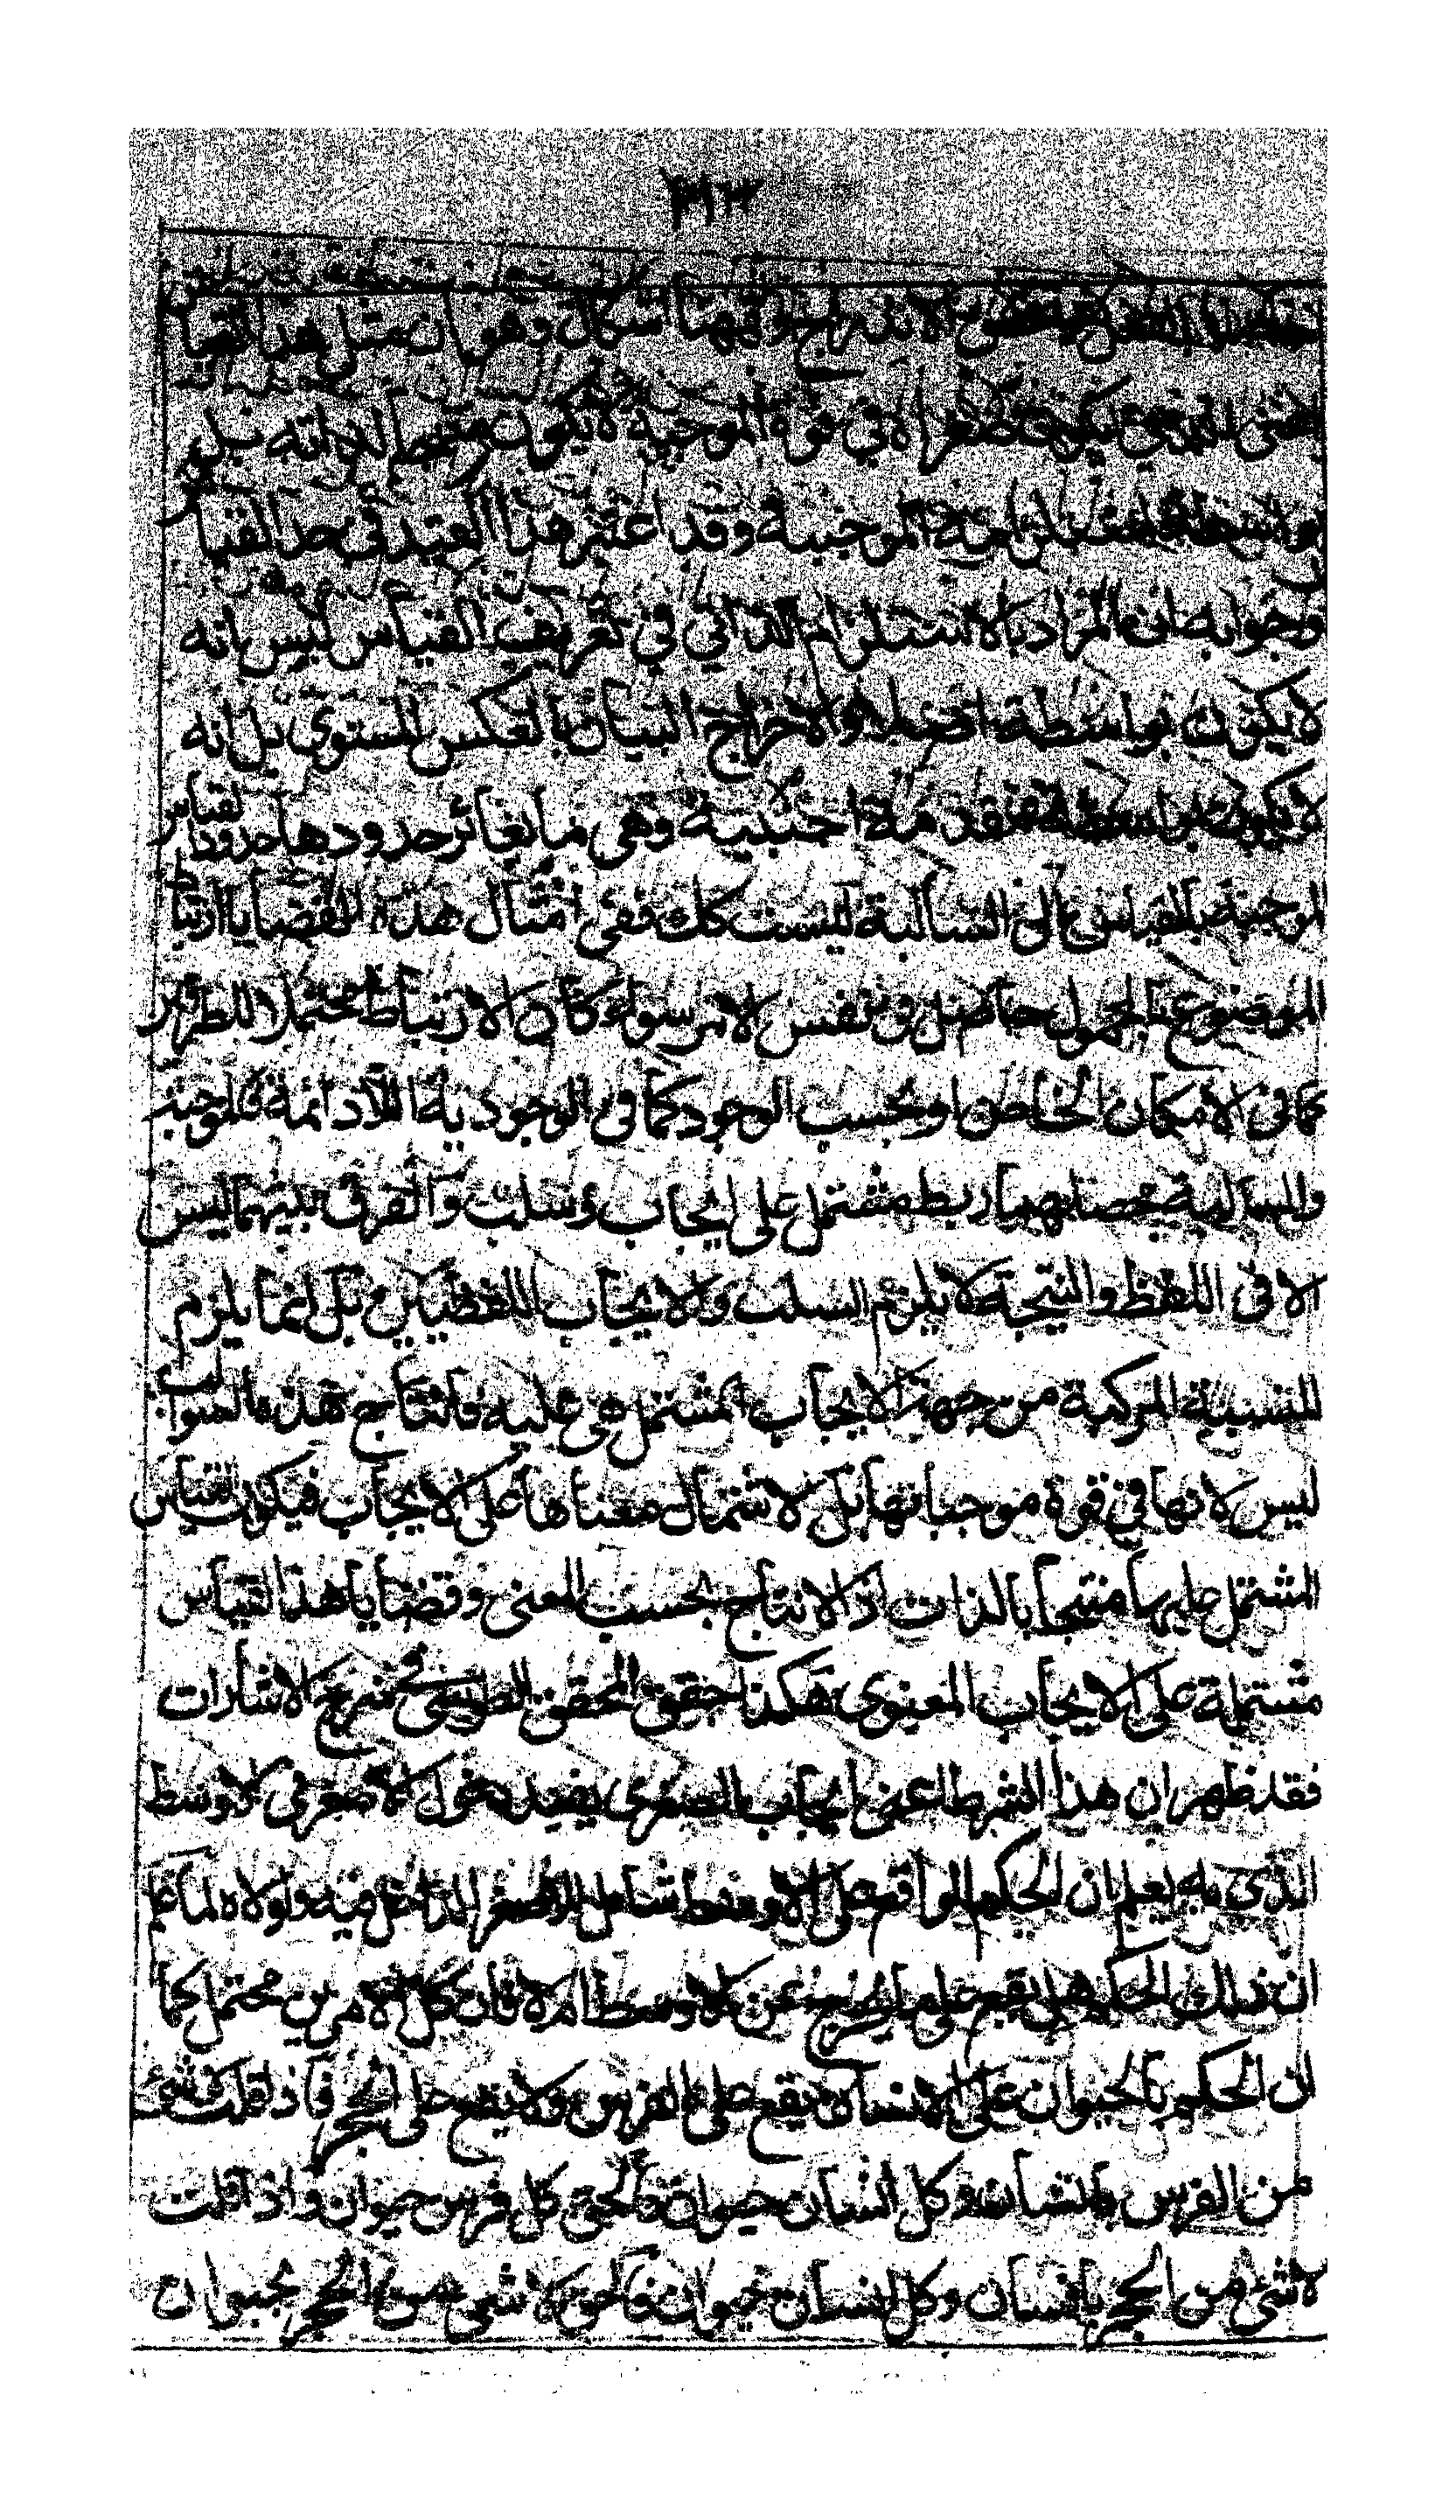 ٣١٣
الاندراج وههنا اشكال وهو ان مثل هذا القيا
لا في قوة الموجبة لا يكون منتجا لذاته بل
الموجبة وقد اعتبر هذا القيد في حد القيا
وجوابه ان المراد بالاستلزام الذاتي في تعريف القياس ليس انه
لا يكون بواسطة اصلا والا لاخراج البيان بالعكس المستوي بل انه
لا يكون بواسطة مقدمة اجنبية وهي ما يغاير حدودها حدود القياس
الموجبة بالقياس الى السالبة ليست كك ففي امثال هذه القضايا ارتبا
الموضوع بالمحمول حاصل في نفس الامر سواء كان الارتباط محتملا للطرفين
كما في الامكان الخاص او بحسب الوجود كما في الوجودية اللادائمة فالموجبة
والسالبة محصلهما ربط مشتمل على ايجاب وسلب والفرق بينهما ليس
الا في اللفظ والنتيجة لا يلزم السلب والايجاب اللفظيين بل انما يلزم
للنسبة المركبة من جهة الايجاب المشتمل هي عليه فانتاج هذه السوالب
ليس لانها في قوة موجباتها بل لاشتمال معناها على الايجاب فيكون القياس
المشتمل عليها منتجا بالذات اذ الانتاج بحسب المعنى وقضايا هذا القياس
مشتملة على الايجاب المعنوي هكذا حقق المحقق الطوسي في شرح الاشارات
فقد ظهر ان هذا الشرط اعني ايجاب الصغرى يفيد دخول الاصغر في الاوسط
الذي به يعلم ان الحكم الواقع على الاوسط شامل للاصغر الداخل فيه ولولاه لما علم
ان ذلك الحكم هل يقع على ما يخرج عن الاوسط ام لا فان كلا الامرين محتمل كما
ان الحكم بالحيوان على الانسان يقع على الفرس ولا يقع على الحجر فاذا قلت لا شئ
من الفرس بانسان وكل انسان حيوان فالحق كل فرس حيوان واذا قلت
لا شئ من الحجر بانسان وكل انسان حيوان فالحق لا شئ من الحجر بحيوان